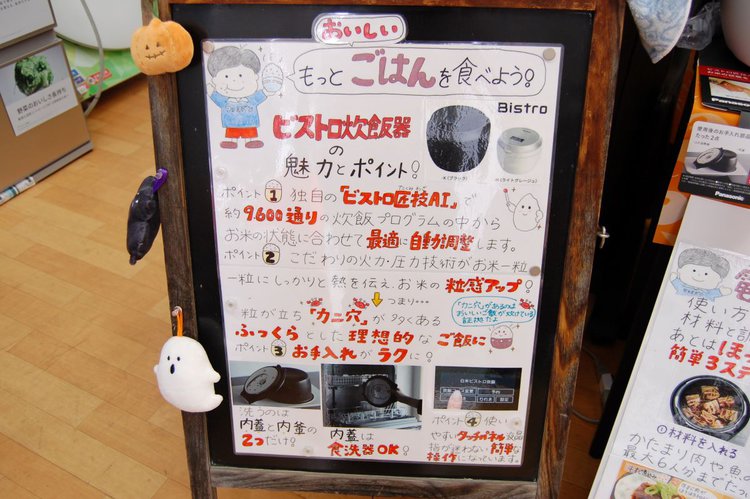 おいしい
もっとごはんを食べよう!
Bistro
ビストロ炊飯器
の
魅力とポイント!
-K(ブラック)
-H(ライトグレージュ)
ポイント1 独自の「ビストロ匠技AI」で
約9600通りの炊飯プログラムの中から
お米の状態に合わせて最適に自動調整します。
ポイント2 こだわりの火力・圧力技術がお米一粒
一粒にしっかりと熱を伝え、お米の粒感アップ!
つまり…
粒が立ち「カニ穴」が多くある
ふっくらとした理想的なご飯に
「カニ穴」があるのは
おいしいご飯が炊けている
証拠だよ
ポイント3 お手入れがラクに!
洗うのは
内蓋と内釜の
2つだけ!
内蓋は
食洗器OK!
白米ビストロ炊飯
予約
ポイント4 使い
やすいタッチパネル液晶
指が迷わない簡単な
操作になっています。
野菜のおいしさ長持ち
使用後のお手入れ部品
たった2点
Panasonic
使い方
材料と
あとはほ
簡単3ステ
①材料を入れる
かたまり肉や魚
最大6人分まで